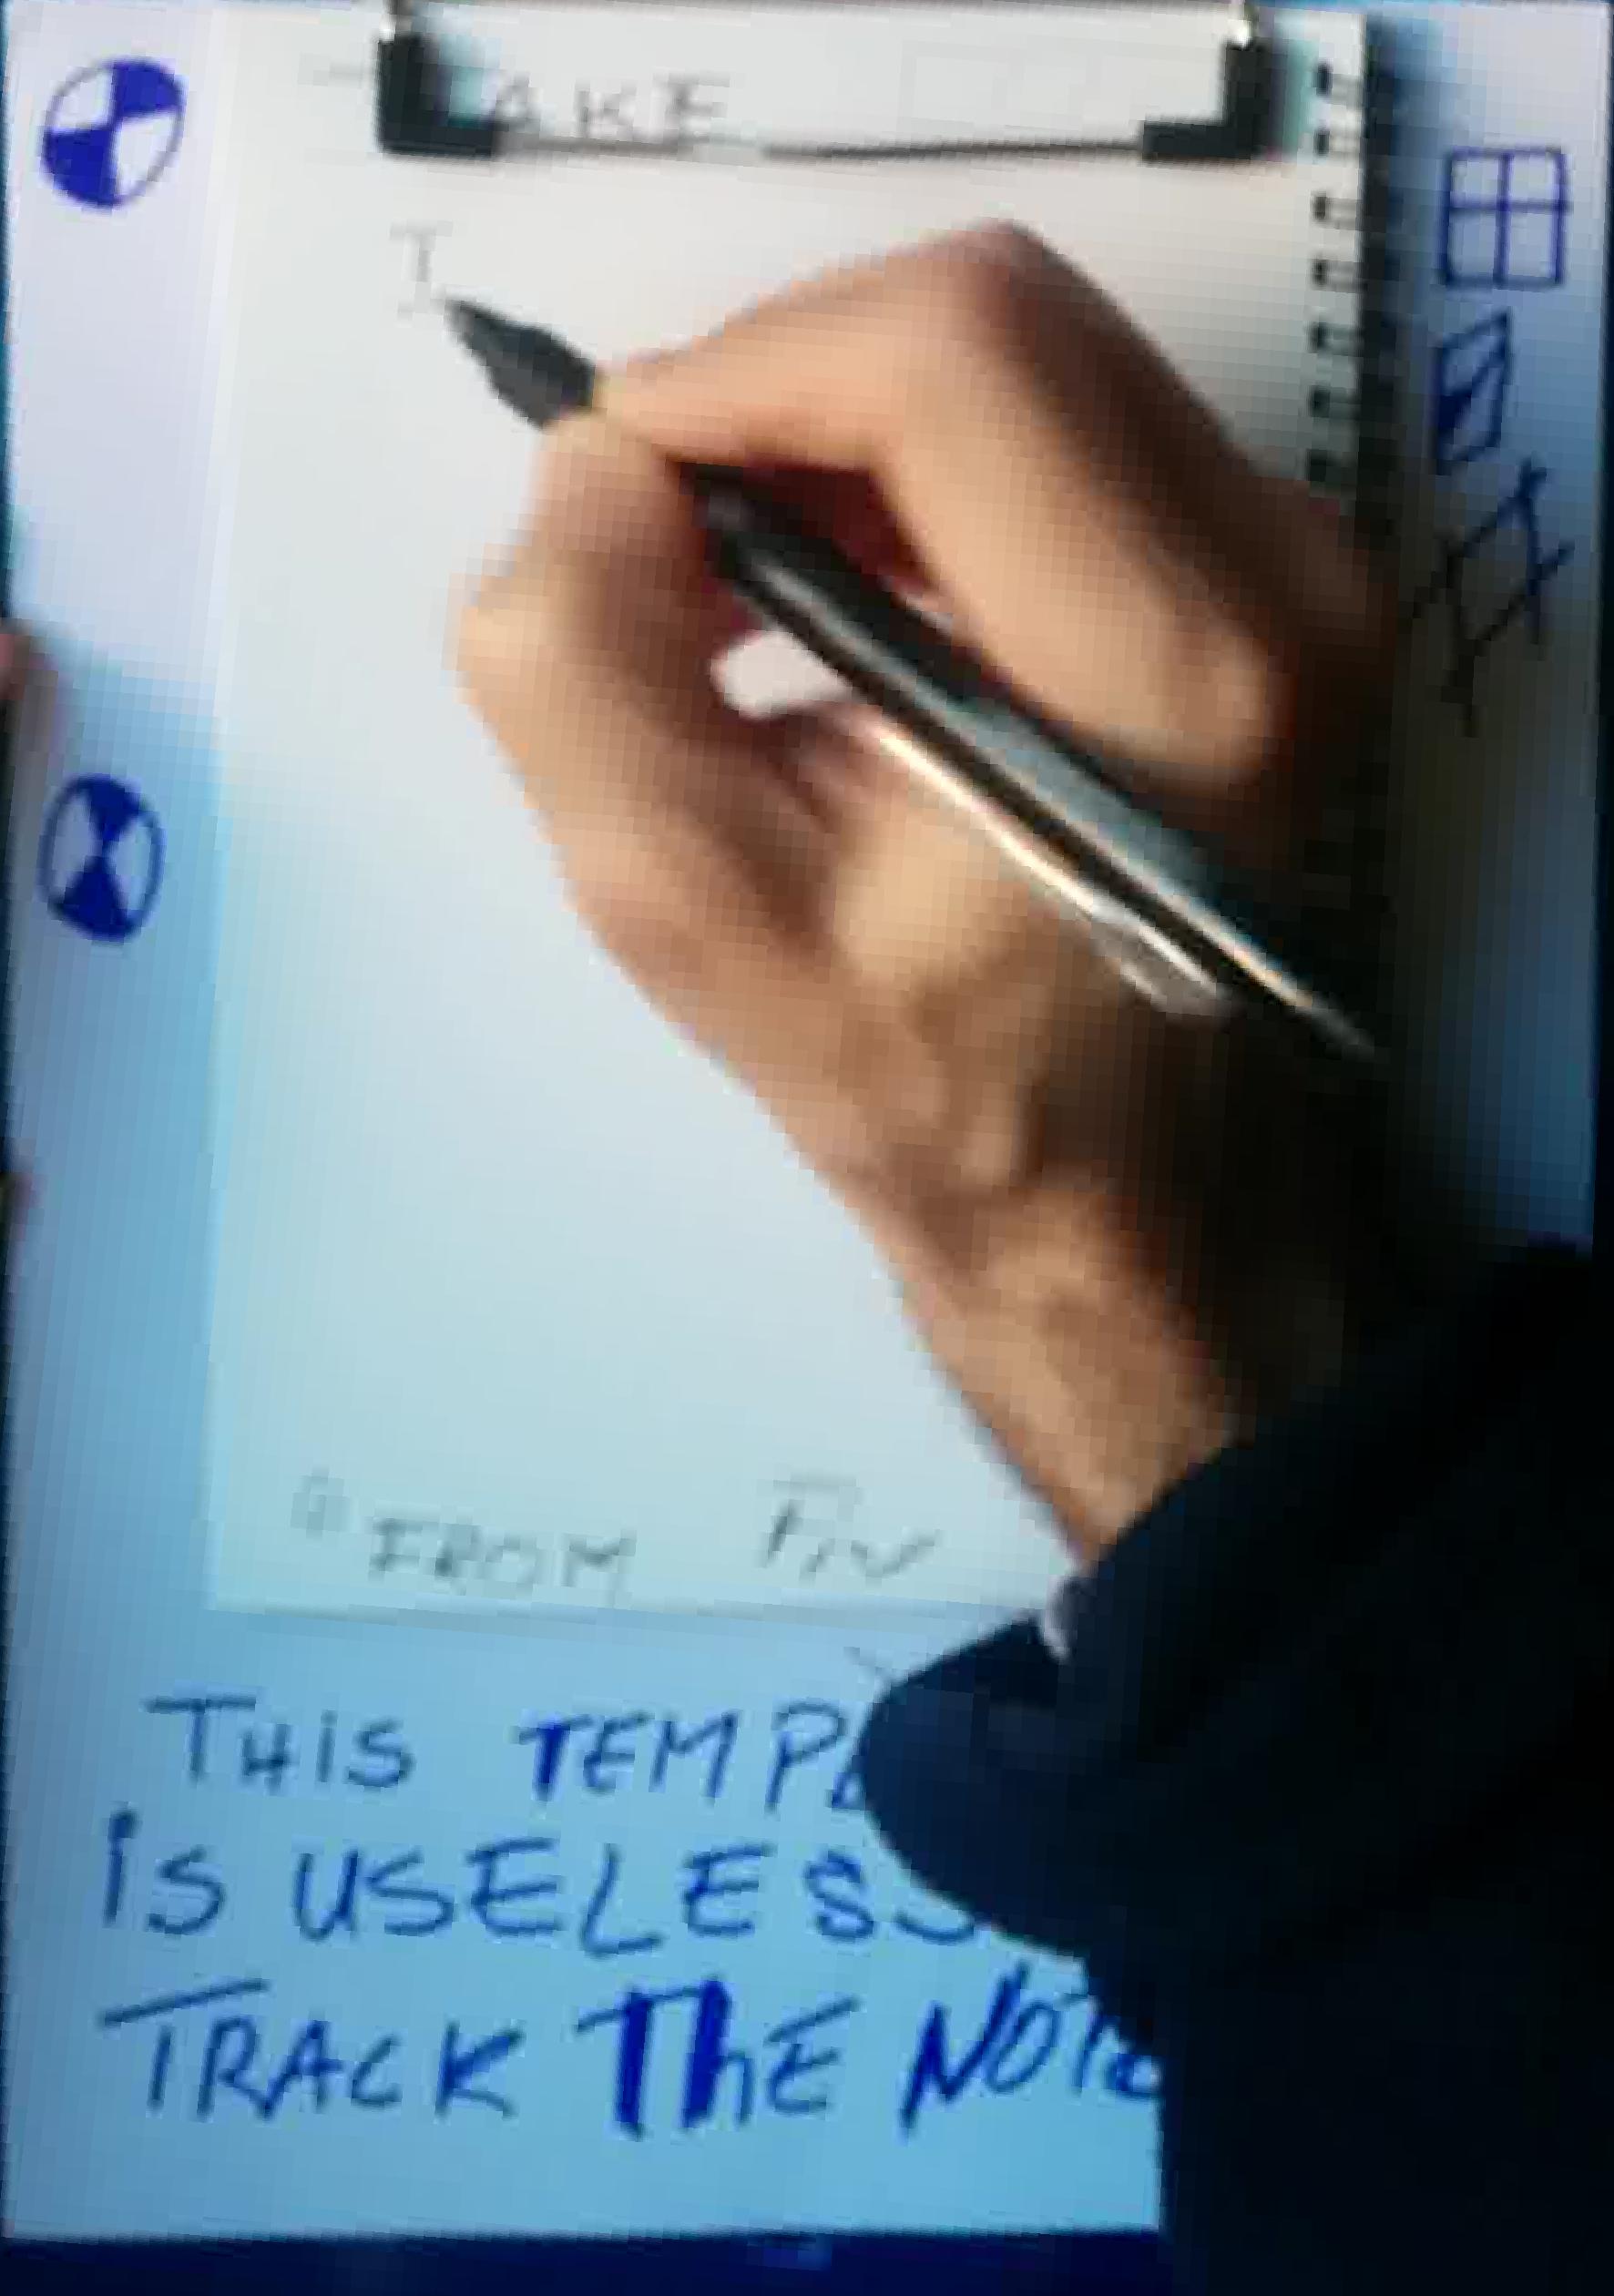 AKE
I
FROM
THIS TEMP
IS USELESS
TRACK THE